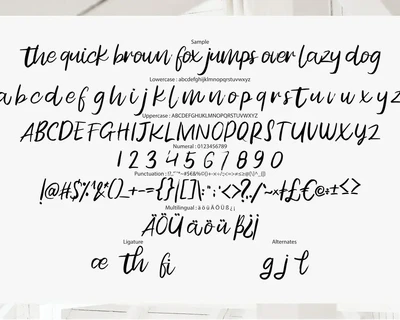 Sample
the quick brown fox jumps over lazy dog
Lowercase : abcdefghijklmnopqrstuvwxyz
a b c d e f g h i j k l m n o p q r s t u v w x y z
Uppercase : ABCDEFGHIJKLMNOPQRSTUVWXYZ
ABCDEFGHIJKLMNOPQRSTUVWXYZ
Numeral : 0123456789
1 2 3 4 5 6 7 8 9 0
Punctuation :
Multilingual : ä ö ü Ä Ö Ü ß ¿ ¡
ÄÖÜ äöü ß¿¡
Ligature Alternates
æ th fi g j l